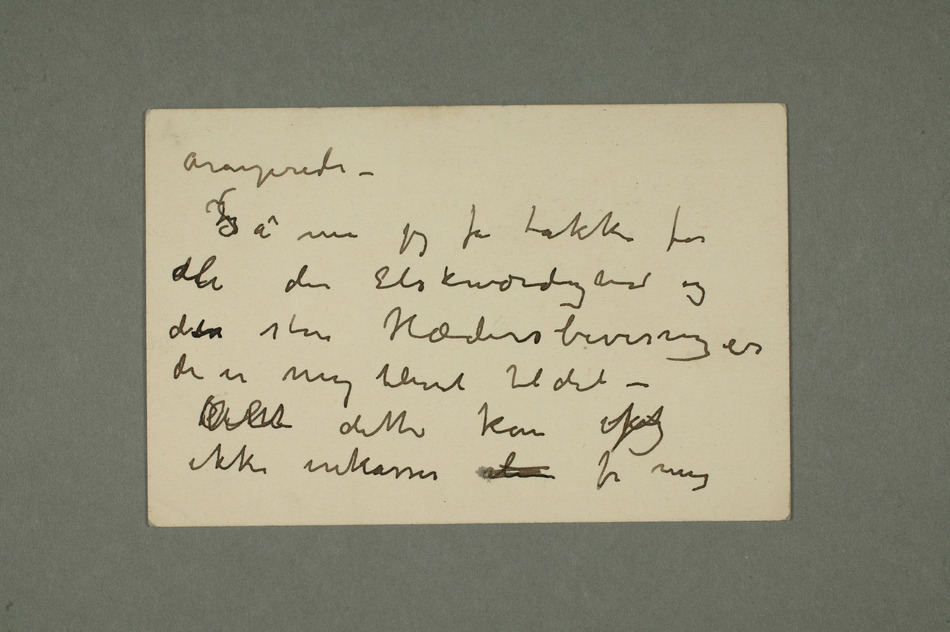 arangerede –
Så må jeg få takke for
alle den Elskværdighed og
den store Hædersbevisninger
der er mig blevet tildel –
Alt dette kan
ikke inkassere for meg